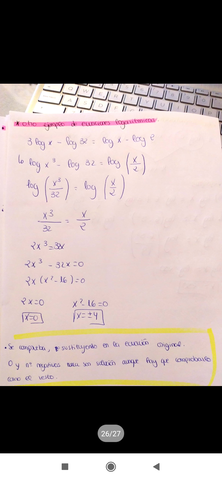 * otro ejemplo de ecuaciones logarítmicas
3 log x - log 32 = log x - log 2
log x³ - log 32 = log (x/2)
log (x³/32) = log (x/2)
x³/32 = x/2
2x³ = 32x
2x³ - 32x = 0
2x (x² - 16) = 0
2x = 0 x² - 16 = 0
x = 0 x = ±4
• Se comprueba, sustituyendo en la ecuación original.
0 y nº negativos nunca son solución aunque hay que comprobarlo
como se
26/27